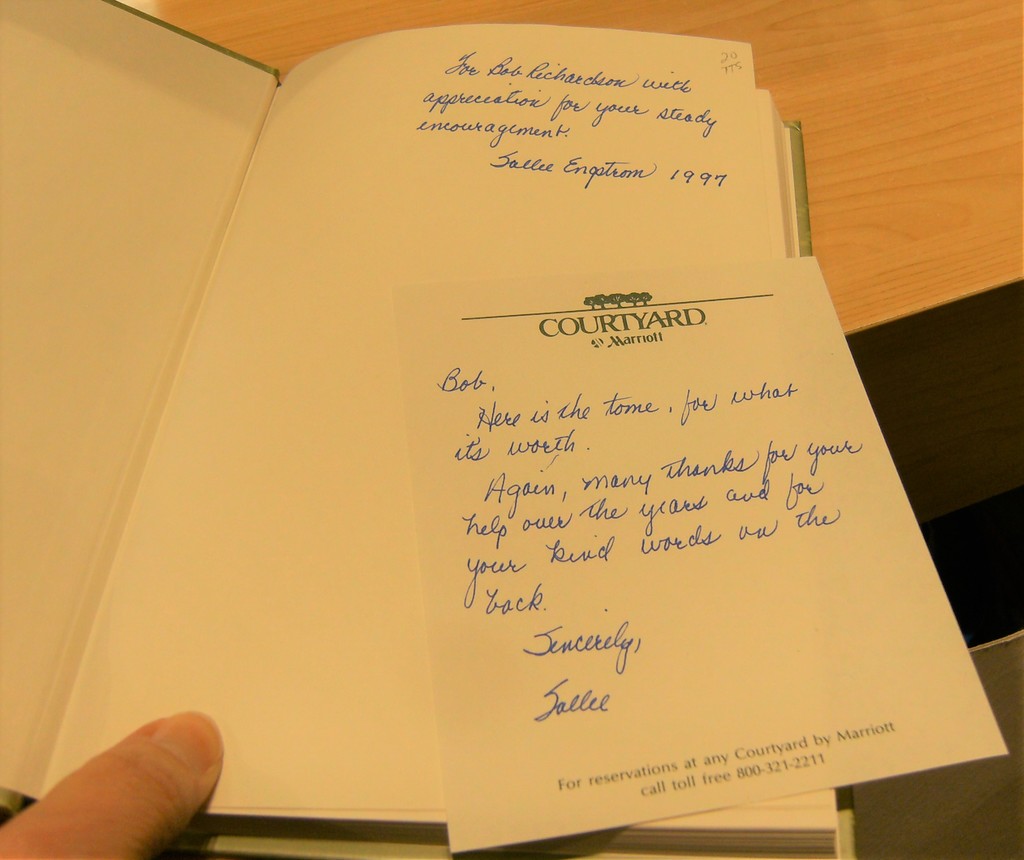 For Bob Richardson with
appreciation for your steady
encouragement.
Sallie Engstrom 1997
COURTYARD
Marriott
Bob,
Here is the tome, for what
it's worth.
Again, many thanks for your
help over the years and for
your kind words on the
back.
Sincerely,
Sallie
For reservations at any Courtyard by Marriott
call toll free 800-321-2211